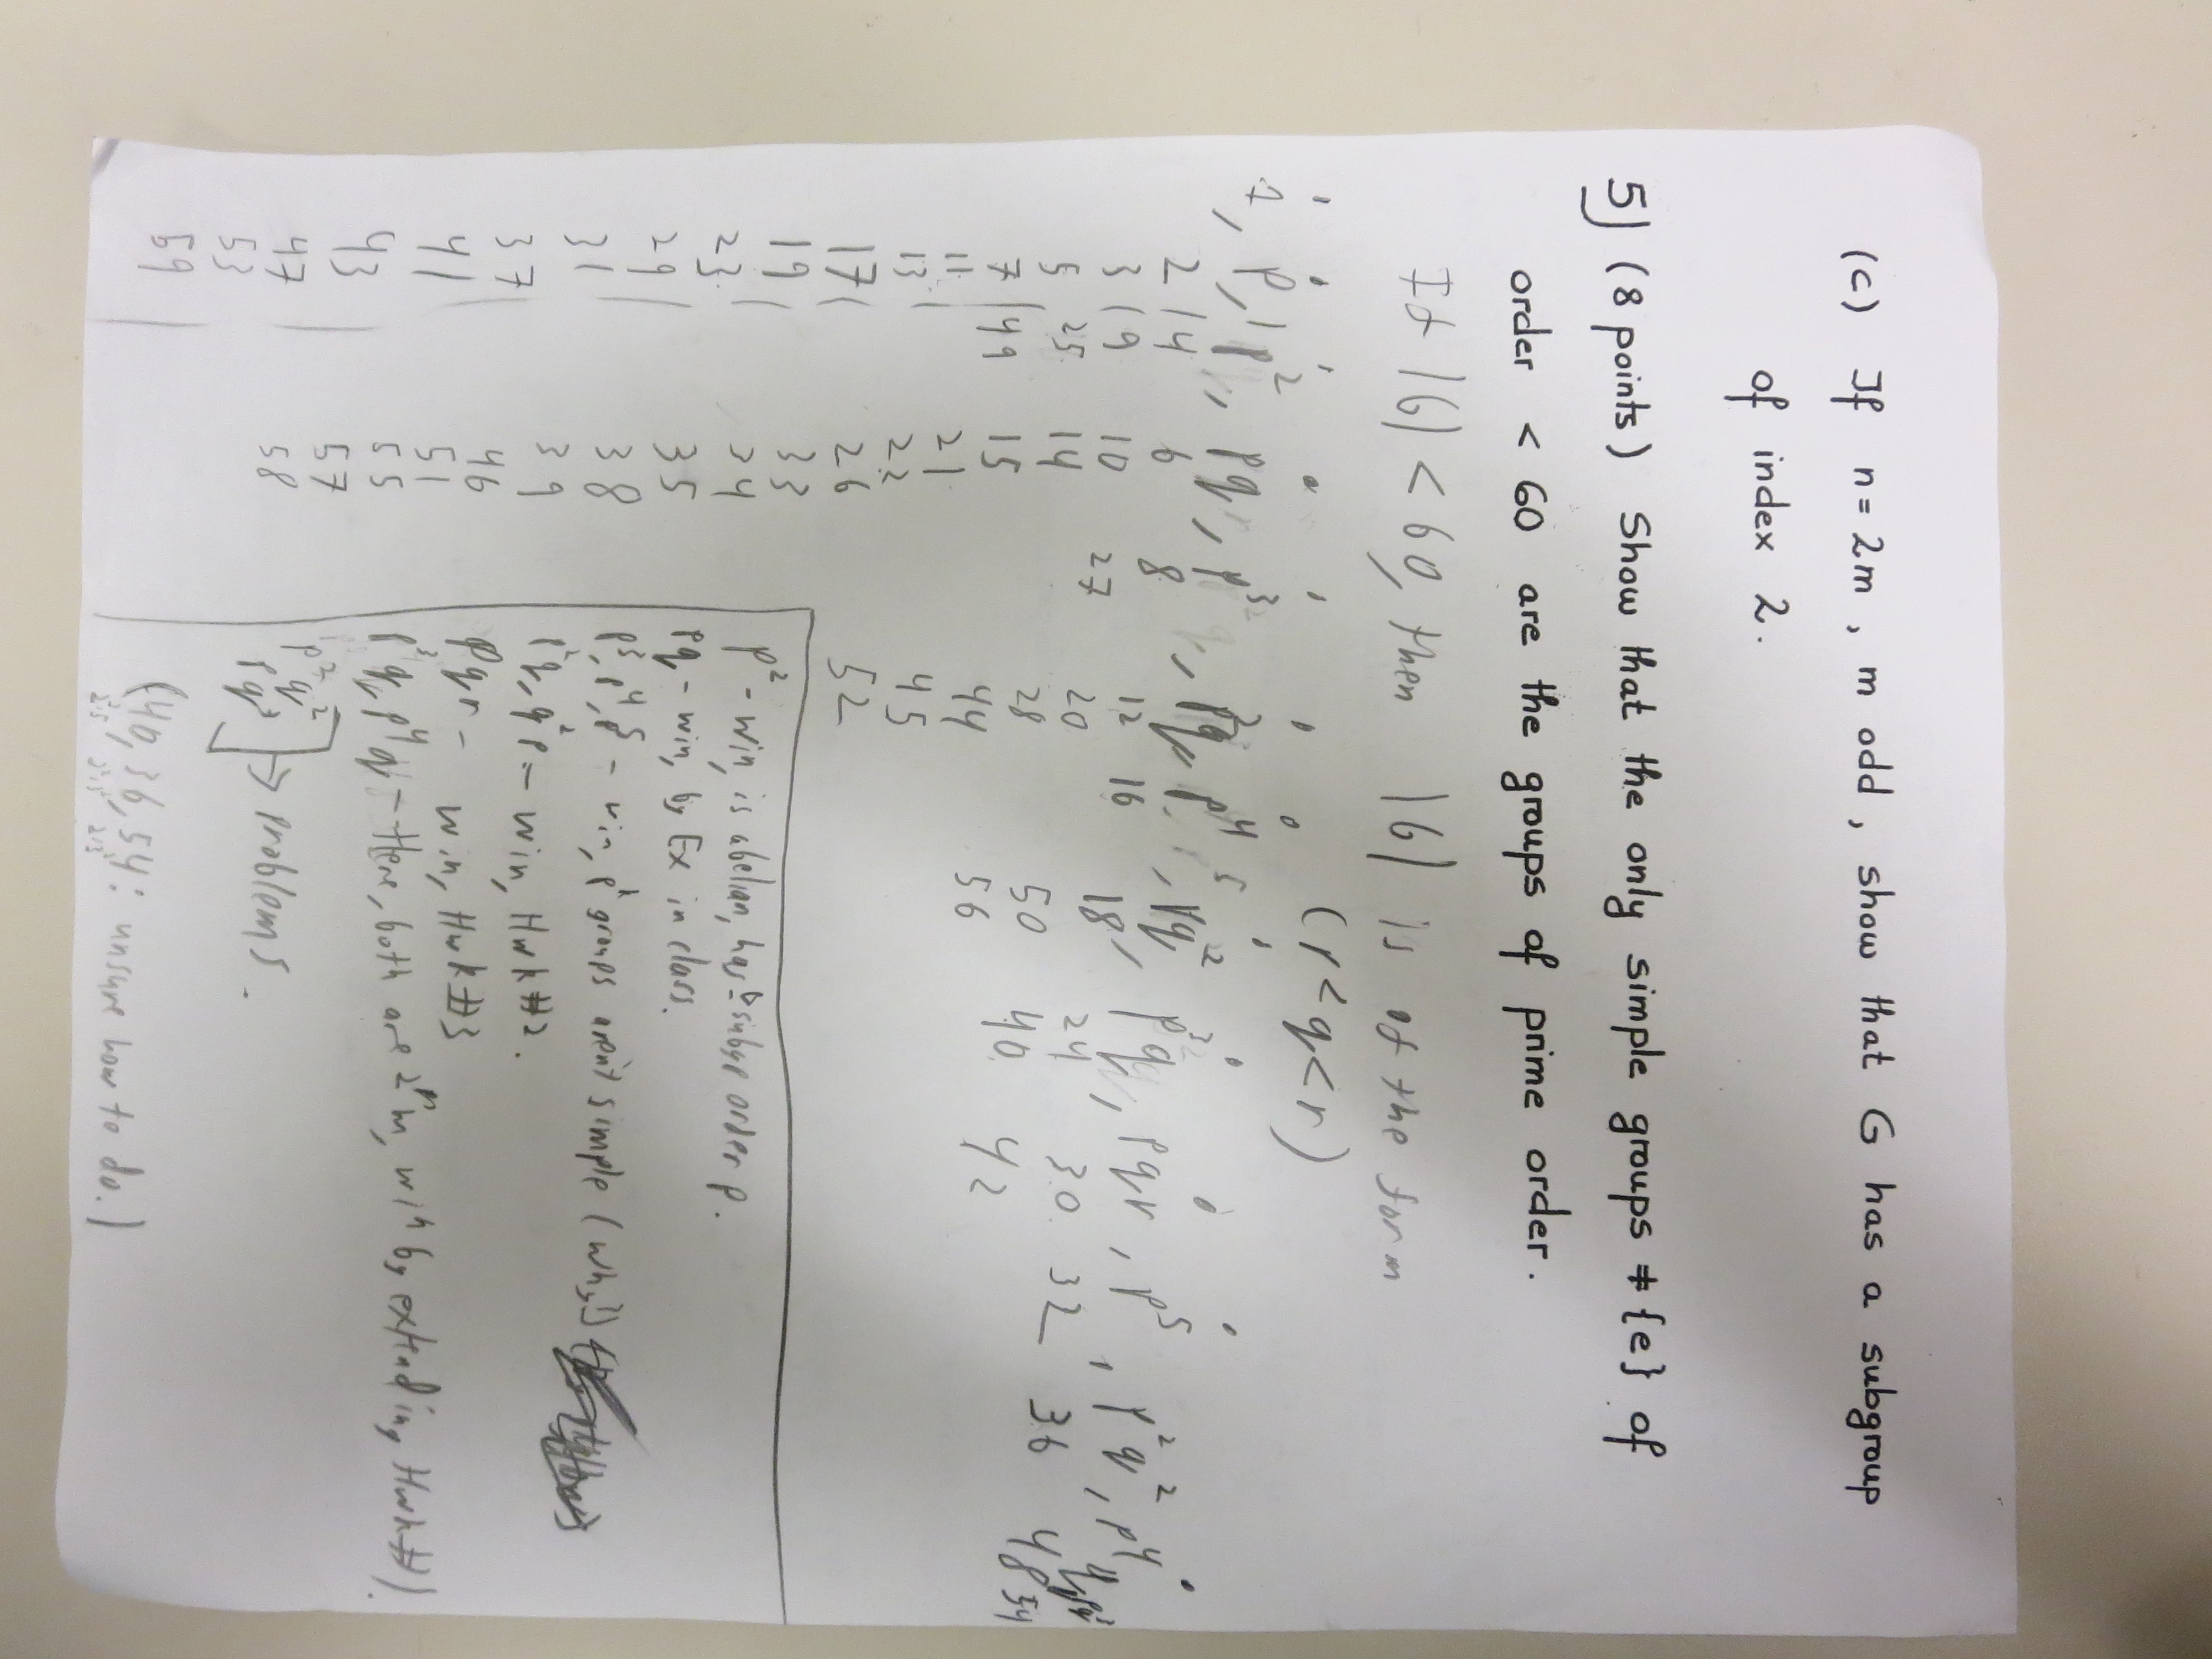 (c) If n = 2m, m odd, show that G has a subgroup
of index 2.
5) (8 points) Show that the only simple groups ≠ {e} of
order < 60 are the groups of prime order.
If |G| < 60, then |G| is of the form
(p<q<r)
1, p, p², pq, p³, p²q, p⁴, pq², p³q, pqr, p⁵, p²q², p⁴q, pq³
2 4 6 8 12 16 18, 24 30 32 36 48 54
3 9 10 27 20 50 40 42
5 25 14 28 56
7 49 15 44
11 21 45
13 22 52
17 26
19 33
23 34
29 35
31 38
37 39
41 46
43 51
47 55
53 57
59 58
p² - win, is abelian, has subgp order p.
pq - win, by Ex in class.
p³, p⁴, p⁵ - win, pᵏ groups aren't simple (why?)
p²q, q²p - win, Hwk #2.
pqr - win, Hwk #3
p³q, p⁴q - Here, both are 2ⁿm, win by extending Hwk #1.
p²q²
pq³ → problems.
(40, 36, 54: unsure how to do.)